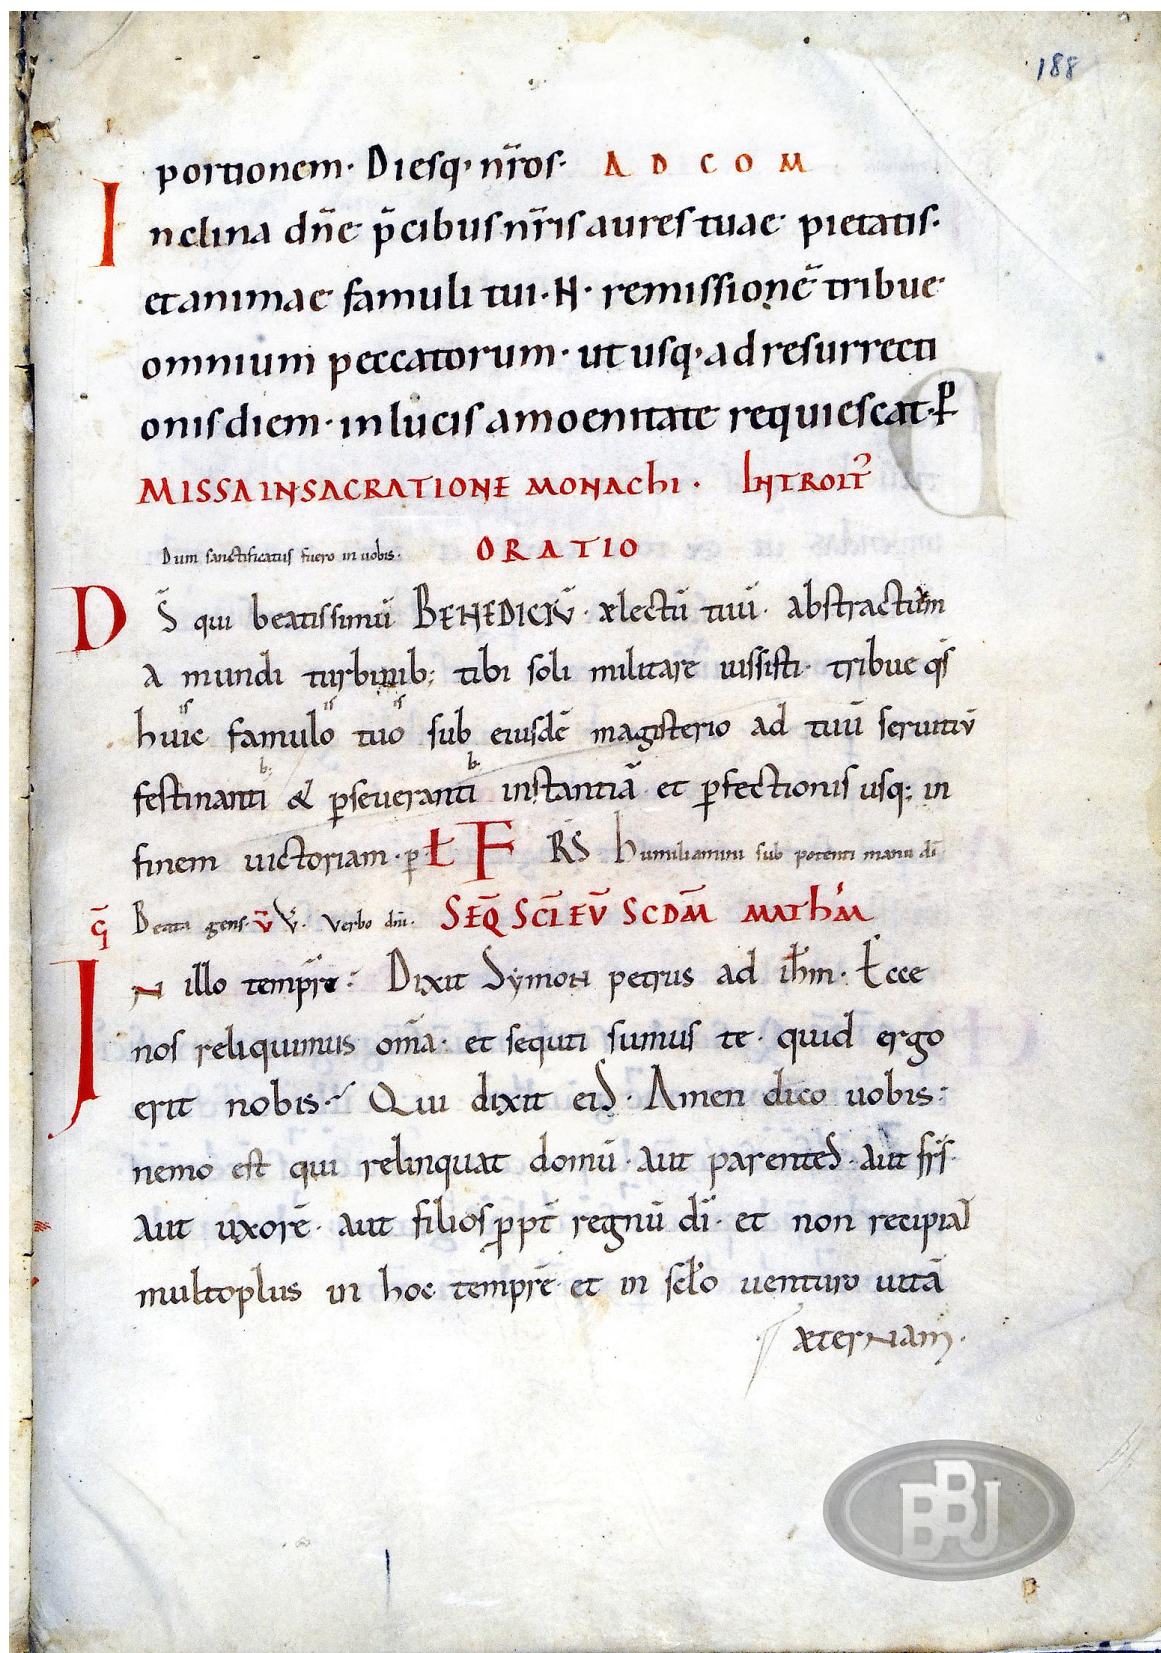 188
portionem· Diesq· nr̄os· AD COM
Inclina dn̄e p̄cibus nr̄is aures tuae pietatis·
et animae famuli tui·N· remissionē tribue
omnium peccatorum· ut usq· ad resurrecti
onis diem· in lucis amoenitate requiescat· P̄
MISSA IN SACRATIONE MONAChI· INTROIT
Dum sanctificatus fuero in uobis· ORATIO
DS̄ qui beatissimū BENEDICTŪ· ælectū tuū· abstractum
A mundi turbinib; tibi soli militare iussisti· tribue q̄s
huic famulo tuo sub eiusdē magisterio ad tuū seruitiū
is is is
festinanti & p̄seueranti instantiā et p̄fectionis usq; in
b; b;
finem uictoriam· p̄ Ł F RS̄ humiliamini sub potenti manu dī
Ḡ Beata gens· V̄ V̄· Verbo dn̄i· SEQ̄ SCĪ EŪ SCDM̄ MATHM̄
IN illo tempr̄e: Dixit Symon petrus ad ih̄m· Ecce
nos reliquimus om̄a· et sequti sumus te· quid ergo
erit nobis· Qui dixit eis· Amen dico uobis:
nemo est qui relinquat domū· aut parentes· aut fr̄s·
Aut uxorē· aut filios p̄pt̄ regnū dī· et non recipiat
multoplus in hoc tempr̄e et in sclo uenturo uitā
æternam·
BBJ